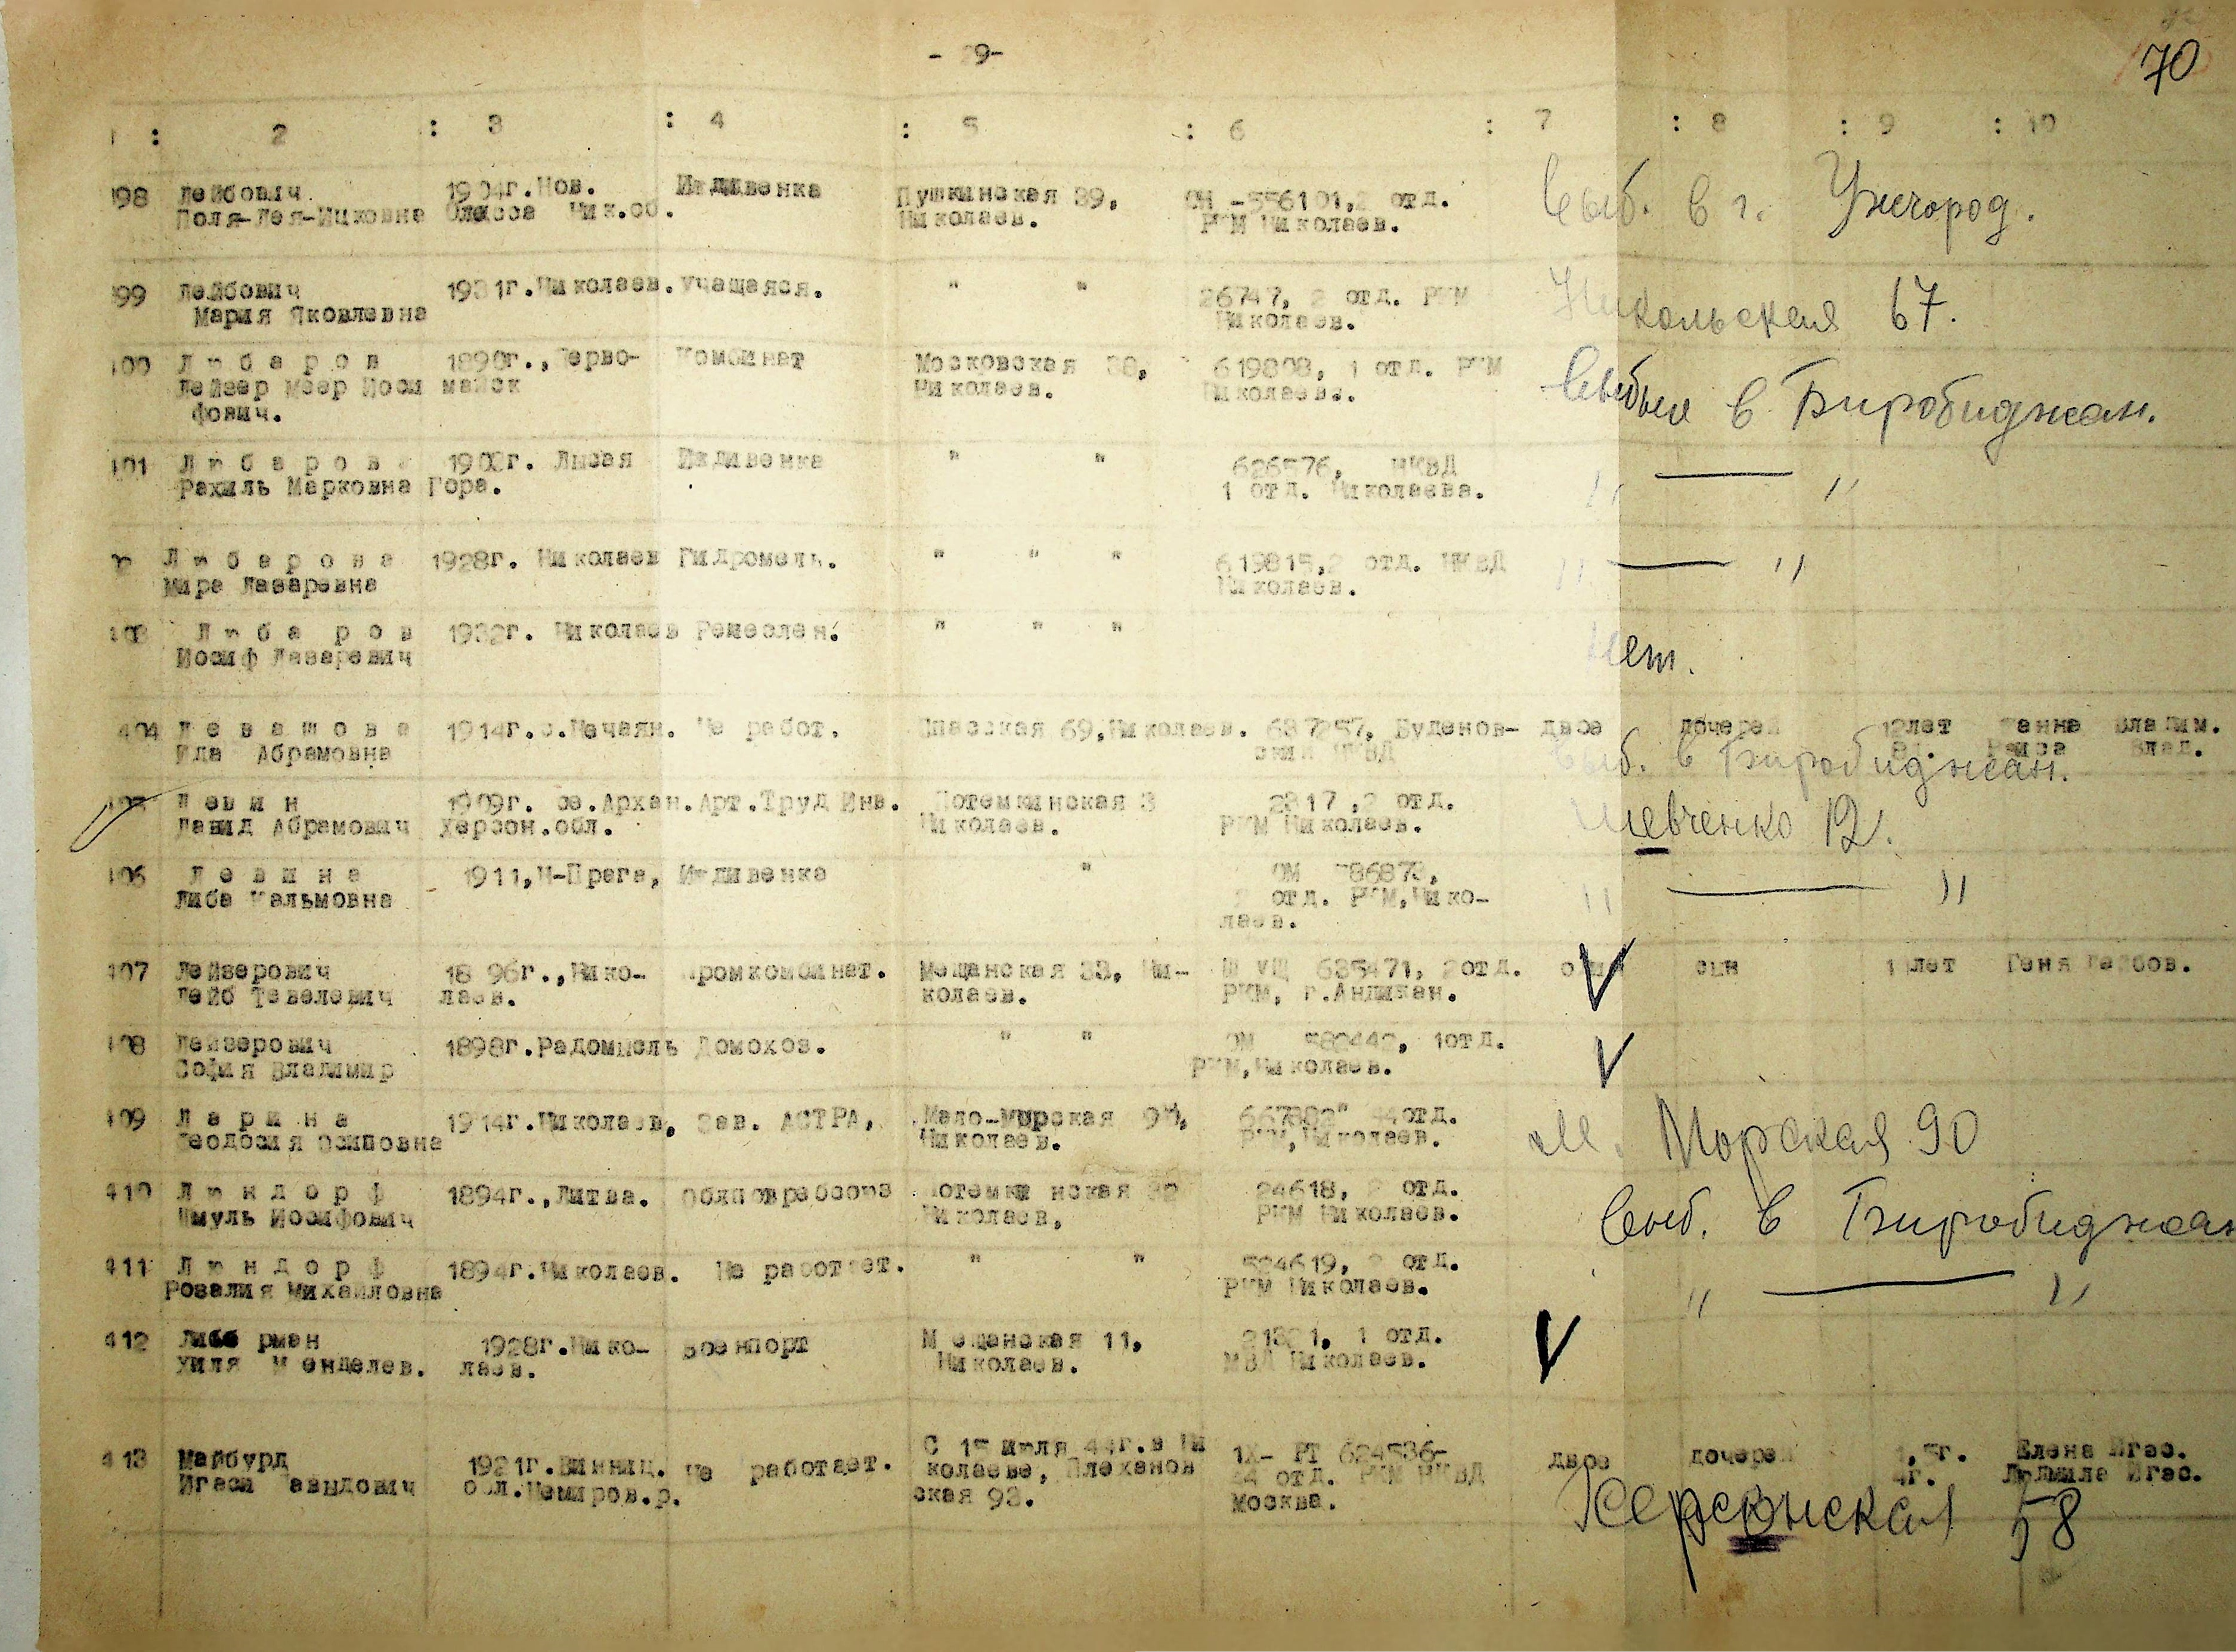 70
- 9-
: 2 : 3 : 4 : 5 : 6 : 7 : 8 : 9 : 10
98 Лейбович 1904г.Нов. Иждивенка Пушкинская 39, 2 отд. Выб. в г. Ужгород.
Поля-Лея-Ицковна Одесса Ник.об. Николаев. РКМ Николаев.
99 Лейбович 1931г.Николаев. Учащаяся. " " 26747, 2 отд. РКМ Никольская 67.
Мария Яковлевна Николаев.
400 Л ю б а р о в 1890г.,Перво- Комбинат Московская 619808, 1 отд. РКМ Выбыл в Биробиджан.
Лейзер Меер Иоси майск Николаев. Николаев..
фович.
401 Л ю б а р о в а Лысая Иждивенка " " 626576, НКВД " — "
Рахиль Марковна Гора. 1 отд. Николаева.
Л ю б а р о в а 1928г. Николаев Гидромель. " " " 619815,2 отд. НКВД " — "
Мира Лазаревна Николаев.
403 Л ю б а р о в 1932г. Николаев Ремеслен. " " " Нет.
Иосиф Лазаревич
404 Л е в а ш о в а 1914г.с.Нечаян. Не работ. Спасская 69,Николаев. 687257, Буденов- двое дочерей 12лет Жанна Владим.
Ида Абрамовна ский НКВД Раиса Влад.
Выб. в Биробиджан.
405 Л е в и н 1909г. Архан. Арт.Труд Инв. Потемкинская 3 2817,2 отд. Шевченко 12.
Давид Абрамович Херсон.обл. Николаев. РКМ Николаев.
406 Л е в и н а 1911,Н-Прага, Иждивенка " ОМ 786873, " — "
Либа Кальмовна отд. РКМ,Нико-
лаев.
407 Лейзерович 1896г.,Нико- Промкомбинат. Мещанская 33, Ни- 635471, 2отд. один V сын лет Геня Лейбов.
Лейб Тевелевич лаев. колаев. РКМ, г.Андижан.
408 Лейзерович 1898г.Радомысль Домохоз. " " ОМ 580442, 1отд. V
София Владимир РКМ,Николаев.
409 Л а р и н а 1914г.Николаев, Зав. АСТРА, Мало-Морская 90, отд. М. Морская 90
Феодосия Осиповна Николаев. РКМ,Николаев.
410 Л ю н д о р ф 1894г.,Литва. Облпотребсоюз Потемкинская 24618, 2 отд. Выб. в Биробиджан
Шмуль Иосифович Николаев, РКМ Николаев.
411 Л ю н д о р ф 1894г.Николаев. Не работает. " " 524619, 2 отд. " — "
Розалия Михайловна РКМ Николаев.
412 Либерман 1928г.Нико- Военпорт Мещанская 11, 1 отд. V
Хиля Менделев. лаев. Николаев. МВД Николаев.
413 Майбурд 1921г.Винниц. Не работает. С 15 июля 44г.в Ни 1Х- РТ 624536- двое дочерей 1,5г. Елена Игас.
Игаси Давыдович обл.Немиров.р. колаеве, Плеханов 44 отд. РКМ НКВД 4г. Людмила Игас.
ская 93. Москва.
Херсонская 58